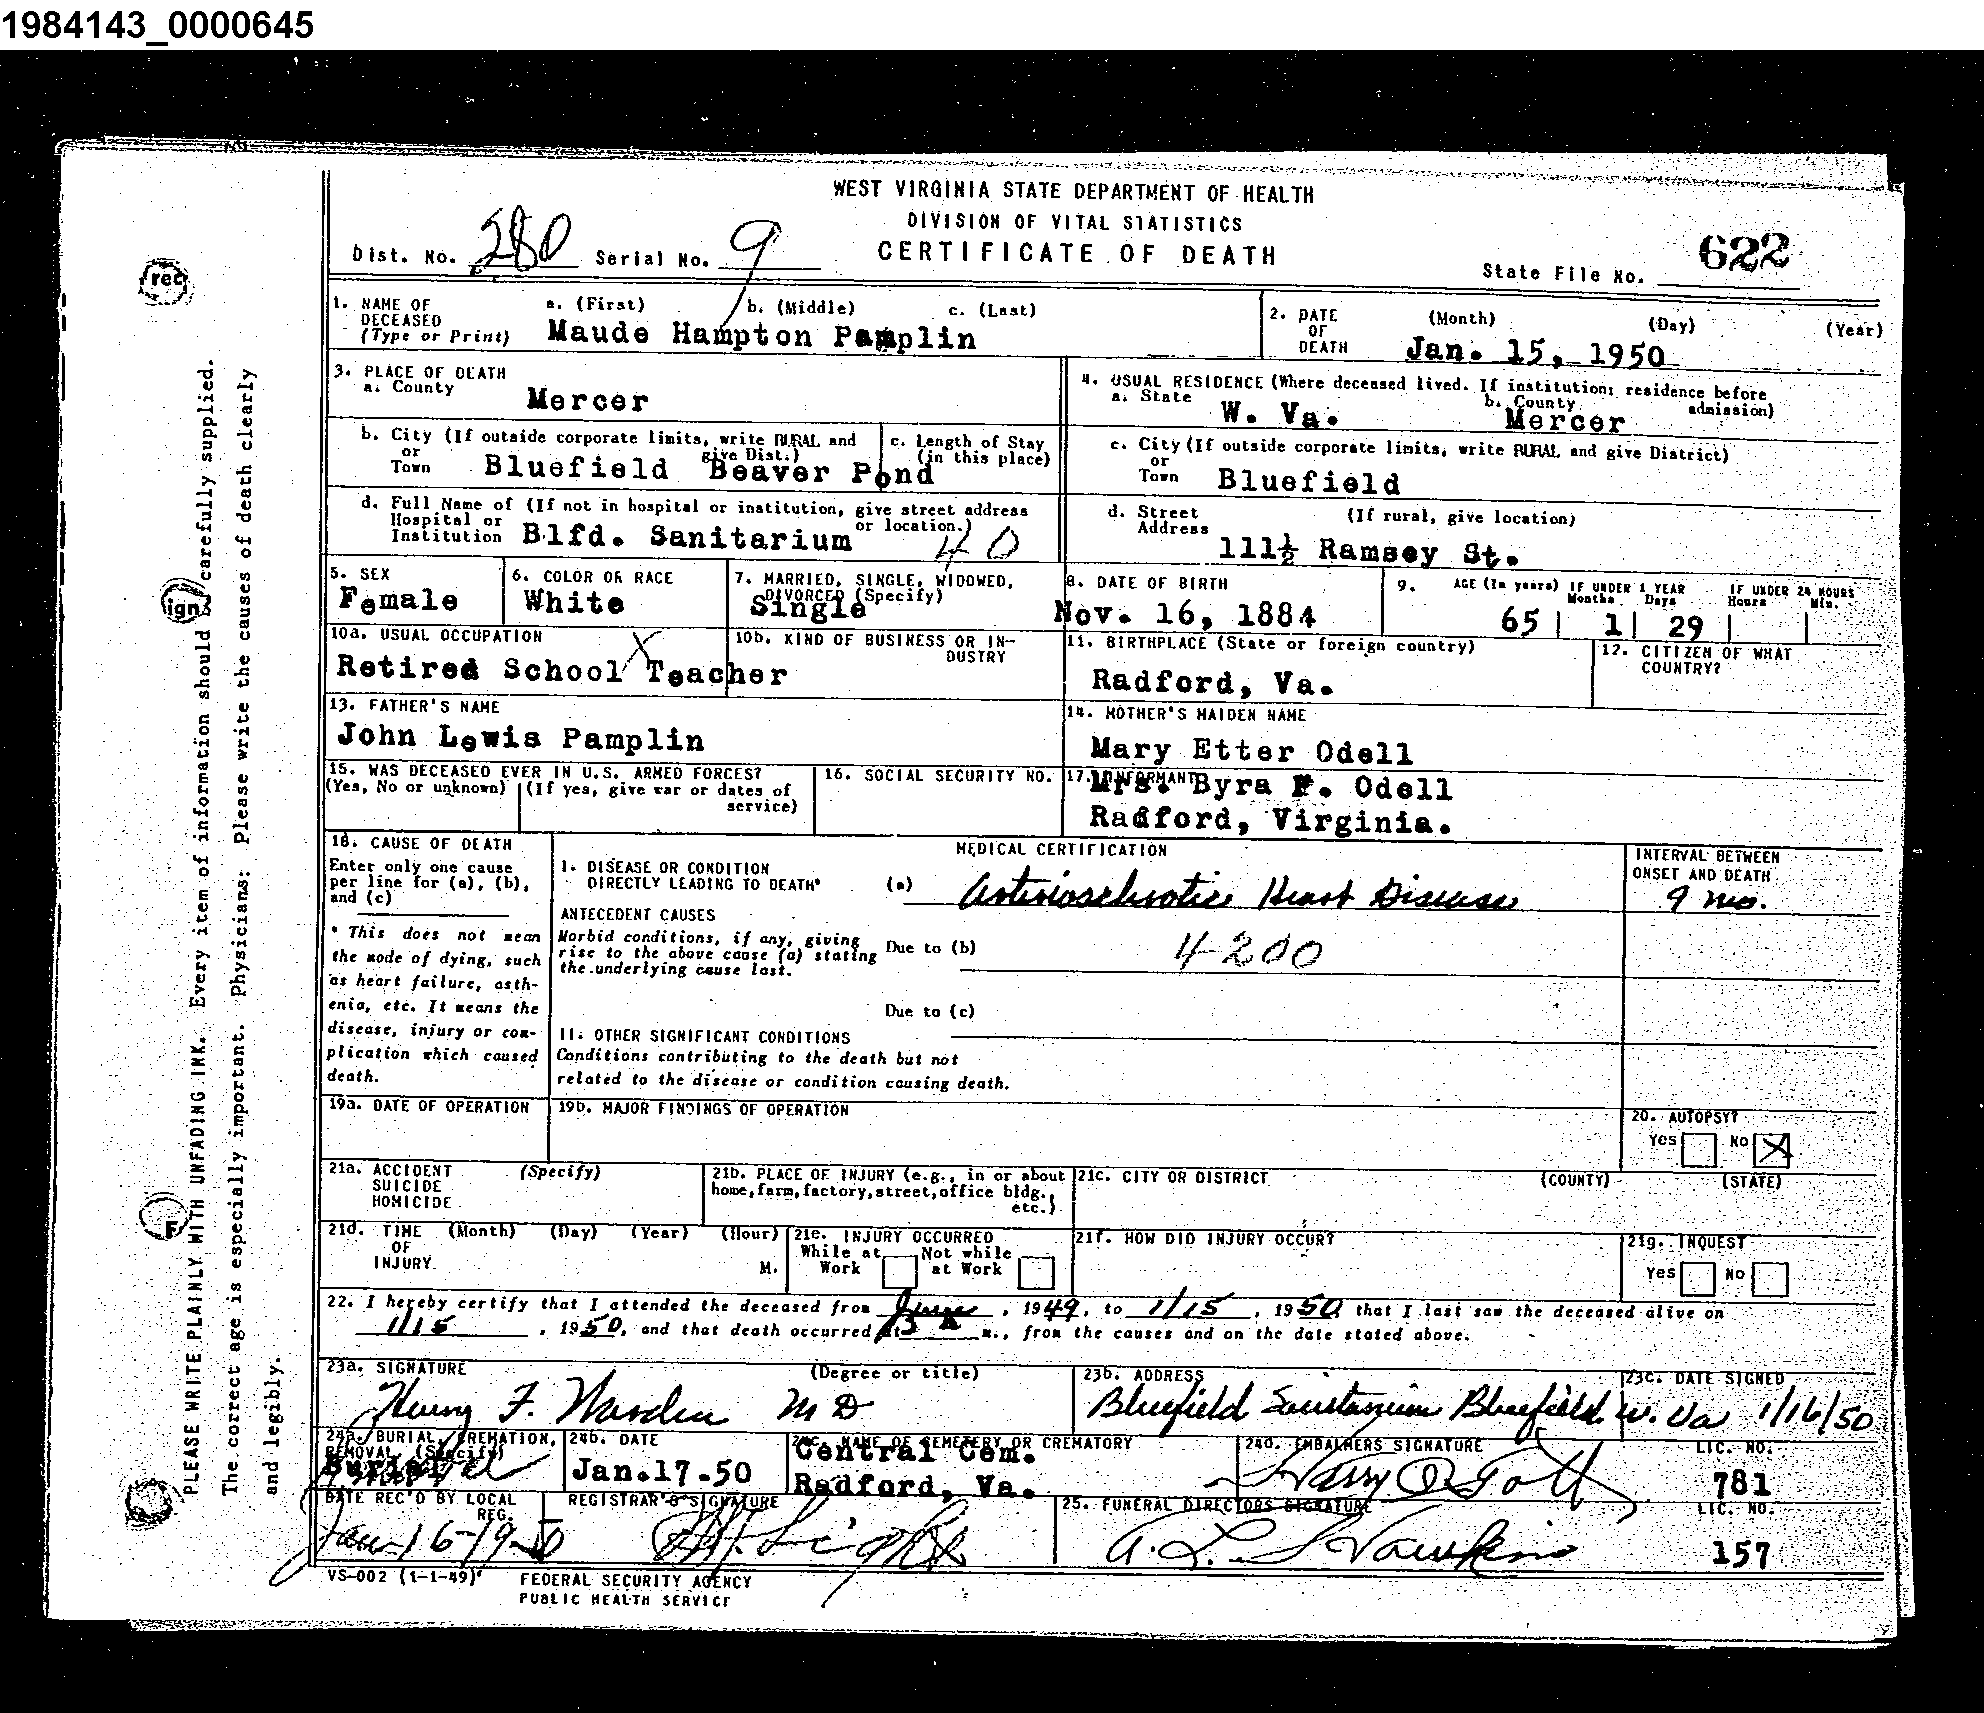 1984143_0000645
WEST VIRGINIA STATE DEPARTMENT OF HEALTH
DIVISION OF VITAL STATISTICS
CERTIFICATE OF DEATH
Dist. No. 280 Serial No. 9
State File No. 622
1. NAME OF DECEASED (Type or Print) a. (First) b. (Middle) c. (Last)
Maude Hampton Pamplin
2. DATE OF DEATH (Month) (Day) (Year)
Jan. 15, 1950
3. PLACE OF DEATH
a. County Mercer
4. USUAL RESIDENCE (Where deceased lived. If institution: residence before admission)
a. State W. Va. b. County Mercer
b. City (If outside corporate limits, write RURAL and give Dist.)
or Town Bluefield Beaver Pond
c. Length of Stay (in this place)
c. City (If outside corporate limits, write RURAL and give District)
or Town Bluefield
d. Full Name of (If not in hospital or institution, give street address or location.)
Hospital or Institution Blfd. Sanitarium 40
d. Street Address (If rural, give location)
111½ Ramsey St.
5. SEX
Female
6. COLOR OR RACE
White
7. MARRIED, SINGLE, WIDOWED, DIVORCED (Specify)
Single
8. DATE OF BIRTH
Nov. 16, 1884
9. AGE (In years) IF UNDER 1 YEAR Months Days IF UNDER 24 HOURS Hours Min.
65 1 29
10a. USUAL OCCUPATION
Retired School Teacher
10b. KIND OF BUSINESS OR INDUSTRY
11. BIRTHPLACE (State or foreign country)
Radford, Va.
12. CITIZEN OF WHAT COUNTRY?
13. FATHER'S NAME
John Lewis Pamplin
14. MOTHER'S MAIDEN NAME
Mary Etter Odell
15. WAS DECEASED EVER IN U.S. ARMED FORCES?
(Yes, No or unknown) (If yes, give war or dates of service)
16. SOCIAL SECURITY NO.
17. INFORMANT
Mrs. Byra F. Odell
Radford, Virginia.
18. CAUSE OF DEATH
Enter only one cause per line for (a), (b), and (c)
* This does not mean the mode of dying, such as heart failure, asthenia, etc. It means the disease, injury or complication which caused death.
MEDICAL CERTIFICATION
INTERVAL BETWEEN ONSET AND DEATH
I. DISEASE OR CONDITION DIRECTLY LEADING TO DEATH* (a) Arteriosclerotic Heart Disease 9 mo.
ANTECEDENT CAUSES
Morbid conditions, if any, giving rise to the above cause (a) stating the underlying cause last.
Due to (b) 4200
Due to (c)
II. OTHER SIGNIFICANT CONDITIONS
Conditions contributing to the death but not related to the disease or condition causing death.
19a. DATE OF OPERATION
19b. MAJOR FINDINGS OF OPERATION
20. AUTOPSY?
Yes No X
21a. ACCIDENT SUICIDE HOMICIDE (Specify)
21b. PLACE OF INJURY (e.g., in or about home, farm, factory, street, office bldg., etc.)
21c. CITY OR DISTRICT (COUNTY) (STATE)
21d. TIME OF INJURY (Month) (Day) (Year) (Hour) M.
21e. INJURY OCCURRED
While at Work Not while at Work
21f. HOW DID INJURY OCCUR?
21g. INQUEST
Yes No
22. I hereby certify that I attended the deceased from June, 1949, to 1/15, 1950 that I last saw the deceased alive on
1/15, 1950, and that death occurred at 3 A m., from the causes and on the date stated above.
23a. SIGNATURE (Degree or title)
Henry F. Warden MD
23b. ADDRESS
Bluefield Sanitarium Bluefield W. Va
23c. DATE SIGNED
1/16/50
24a. BURIAL, CREMATION, REMOVAL (Specify)
Burial
24b. DATE
Jan.17-50
24c. NAME OF CEMETERY OR CREMATORY
Central Cem.
Radford, Va.
24d. EMBALMERS SIGNATURE
LIC. NO.
781
DATE REC'D BY LOCAL REG.
Jan-16-1950
REGISTRAR'S SIGNATURE
25. FUNERAL DIRECTORS SIGNATURE
A. L. Hawkins
LIC. NO.
157
VS-002 (1-1-49)
FEDERAL SECURITY AGENCY
PUBLIC HEALTH SERVICE
PLEASE WRITE PLAINLY WITH UNFADING INK. Every item of information should carefully supplied.
The correct age is especially important. Physicians: Please write the causes of death clearly
and legibly.
rec
ign
F